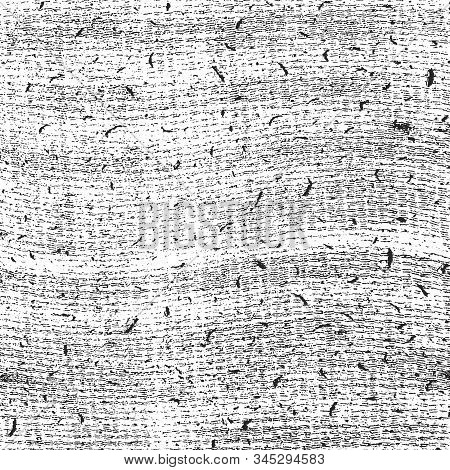 BIGSTOCK
Image ID: 345294583
bigstock.com